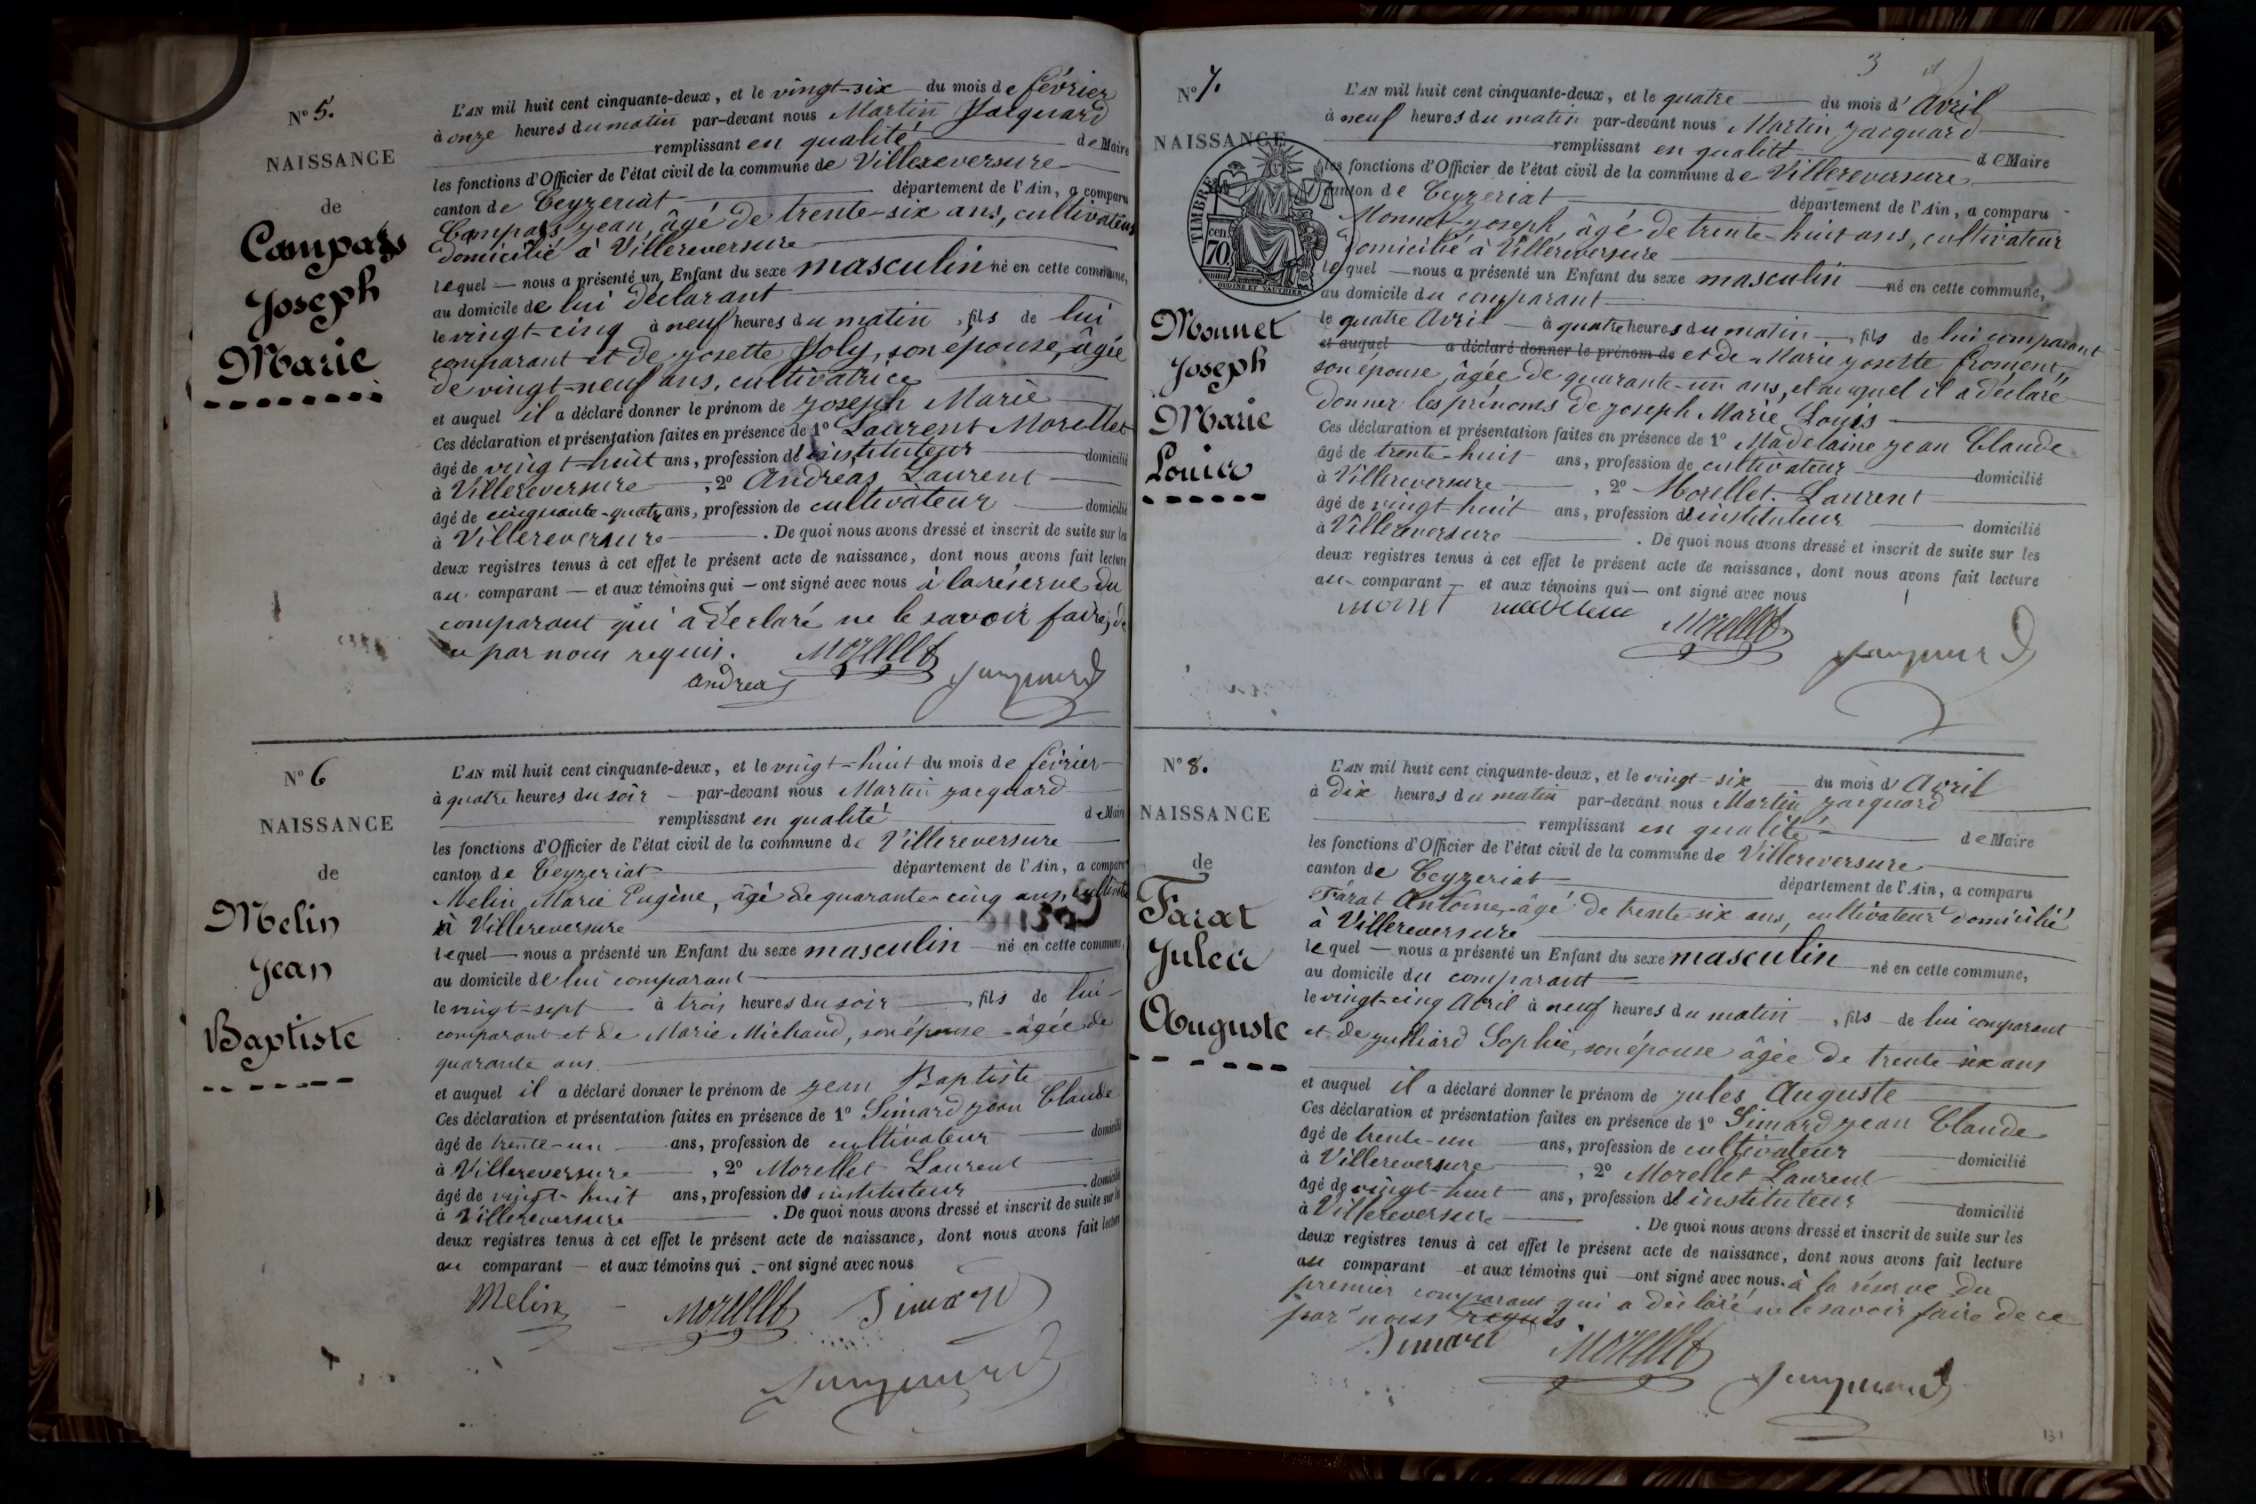 N° 5.
NAISSANCE
de
Campass
Joseph
Marie
L'AN mil huit cent cinquante-deux, et le vingt-six du mois de février
à onze heures du matin par-devant nous Martin Jacquard
remplissant en qualité de Maire
les fonctions d'Officier de l'état civil de la commune de Villereversure
canton de Ceyzeriat département de l'Ain, a comparu
Campass jean, âgé de trente-six ans, cultivateur
domicilié à Villereversure
lequel — nous a présenté un Enfant du sexe masculin né en cette commune,
au domicile de lui déclarant
le vingt-cinq à neuf heures du matin, fils de lui
comparant et de josette Joly, son épouse, âgée
de vingt-neuf ans, cultivatrice
et auquel il a déclaré donner le prénom de joseph Marie
Ces déclaration et présentation faites en présence de 1° Laurent Morellet
âgé de vingt-huit ans, profession d'instituteur domicilié
à Villereversure, 2° Andréas Laurent
âgé de cinquante-quatre ans, profession de cultivateur domicilié
à Villereversure. De quoi nous avons dressé et inscrit de suite sur les
deux registres tenus à cet effet le présent acte de naissance, dont nous avons fait lecture
au comparant — et aux témoins qui — ont signé avec nous à la réserve du
comparant qui a déclaré ne le savoir faire, de
ce par nous requis. Morellet
andreas Jacquard
N° 6
NAISSANCE
de
Melin
Jean
Baptiste
L'AN mil huit cent cinquante-deux, et le vingt-huit du mois de février
à quatre heures du soir — par-devant nous Martin jacquard
remplissant en qualité de Maire
les fonctions d'Officier de l'état civil de la commune de Villereversure
canton de Ceyzeriat département de l'Ain, a comparu
Melin Marie Eugène, âgé de quarante-cinq ans,
à Villereversure
lequel — nous a présenté un Enfant du sexe masculin né en cette commune,
au domicile de lui comparant
le vingt-sept à trois heures du soir, fils de lui
comparant et de Marie Michaud, son épouse âgée de
quarante ans
et auquel il a déclaré donner le prénom de jean Baptiste
Ces déclaration et présentation faites en présence de 1° Simard jean Claude
âgé de trente-un ans, profession de cultivateur domicilié
à Villereversure, 2° Morellet Laurent
âgé de vingt-huit ans, profession d'instituteur domicilié
à Villereversure. De quoi nous avons dressé et inscrit de suite sur les
deux registres tenus à cet effet le présent acte de naissance, dont nous avons fait lecture
au comparant — et aux témoins qui — ont signé avec nous
Melin Morellet Simard
Jacquard
3
N° 7.
NAISSANCE
TIMBRE
70 cen.
OUDINE ET VAUTHIER
Monnet
Joseph
Marie
Louis
L'AN mil huit cent cinquante-deux, et le quatre du mois d'Avril
à neuf heures du matin par-devant nous Martin jacquard
remplissant en qualité de Maire
les fonctions d'Officier de l'état civil de la commune de Villereversure
canton de Ceyzeriat département de l'Ain, a comparu
Monnet joseph, âgé de trente-huit ans, cultivateur
domicilié à Villereversure
lequel — nous a présenté un Enfant du sexe masculin né en cette commune,
au domicile du comparant
le quatre Avril à quatre heures du matin, fils de lui comparant
et auquel a déclaré donner le prénom de et de Marie josette froment,
son épouse, âgée de quarante-un ans, et auquel il a déclaré
donner les prénoms de joseph Marie Louis
Ces déclaration et présentation faites en présence de 1° Madelaine jean Claude
âgé de trente-huit ans, profession de cultivateur domicilié
à Villereversure, 2° Morellet Laurent
âgé de vingt huit ans, profession d'instituteur domicilié
à Villereversure. De quoi nous avons dressé et inscrit de suite sur les
deux registres tenus à cet effet le présent acte de naissance, dont nous avons fait lecture
au comparant — et aux témoins qui — ont signé avec nous
monet Morellet
Jacquard
N° 8.
NAISSANCE
de
Farat
Jules
Auguste
L'AN mil huit cent cinquante-deux, et le vingt-six du mois d'Avril
à dix heures du matin par-devant nous Martin jacquard
remplissant en qualité de Maire
les fonctions d'Officier de l'état civil de la commune de Villereversure
canton de Ceyzeriat département de l'Ain, a comparu
Farat Antoine, âgé de trente-six ans, cultivateur domicilié
à Villereversure
lequel — nous a présenté un Enfant du sexe masculin né en cette commune,
au domicile du comparant
le vingt-cinq Avril à neuf heures du matin, fils de lui comparant
et de julliard Sophie, son épouse âgée de trente-six ans
et auquel il a déclaré donner le prénom de jules Auguste
Ces déclaration et présentation faites en présence de 1° Simard jean Claude
âgé de trente-un ans, profession de cultivateur domicilié
à Villereversure, 2° Morellet Laurent
âgé de vingt-huit ans, profession d'instituteur domicilié
à Villereversure. De quoi nous avons dressé et inscrit de suite sur les
deux registres tenus à cet effet le présent acte de naissance, dont nous avons fait lecture
au comparant et aux témoins qui — ont signé avec nous. à la réserve du
premier comparant qui a déclaré ne le savoir faire de ce
par nous requis
Simard Morellet Jacquard
131